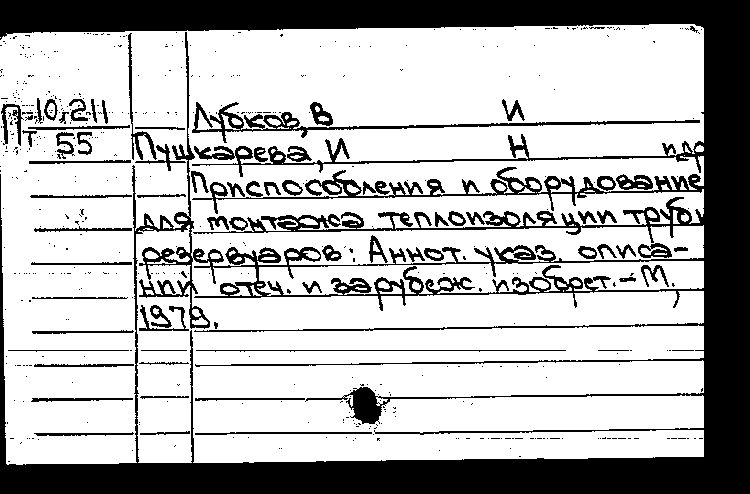 Пт-10,211
55
Лубков, В И
Пушкарева, И Н и др
Приспособления и оборудование
для монтажа теплоизоляции труб и
резервуаров: Аннот. указ. описа-
ний отеч. и зарубеж. изобрет. - М,
1979.